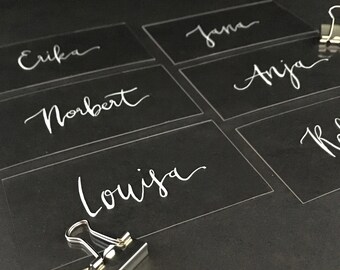 Erika
Jana
Norbert
Anja
Louisa